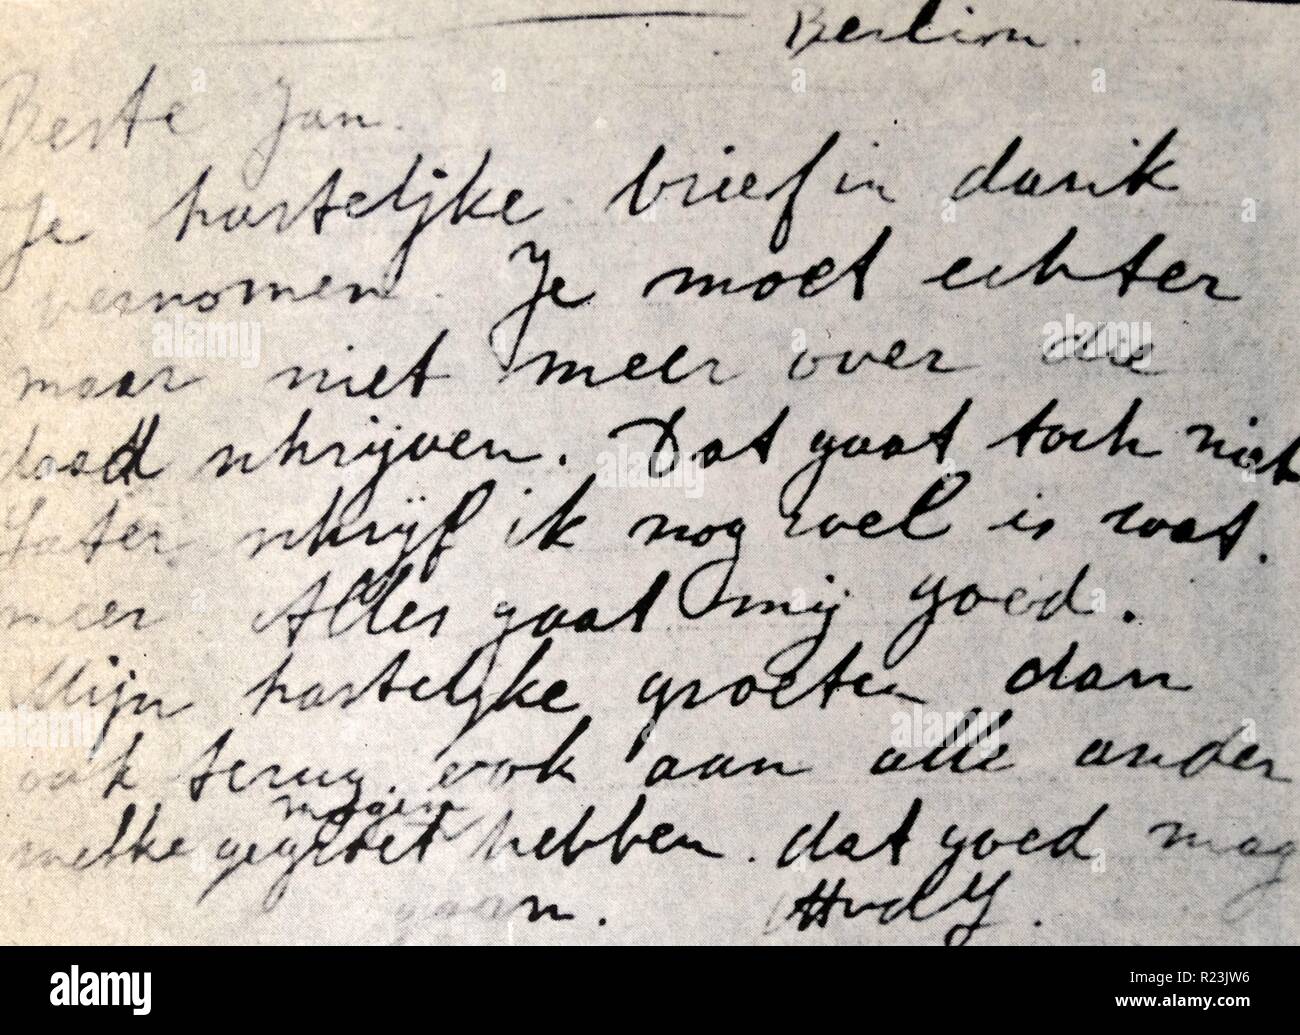 Berlin.
Beste Jan.
Je hartelijke brief in dank
vernomen. Je moet echter
maar niet meer over die
daad schrijven. Dat gaat toch niet
Later schrijf ik nog wel is wat.
meer Alles gaat mij goed.
Mijn hartelijke groeten dan
ook terug, ook aan alle ander
mogen
welke gegroet hebben. dat goed mag
gaan.
alamy
Image ID: R23JW6
www.alamy.com